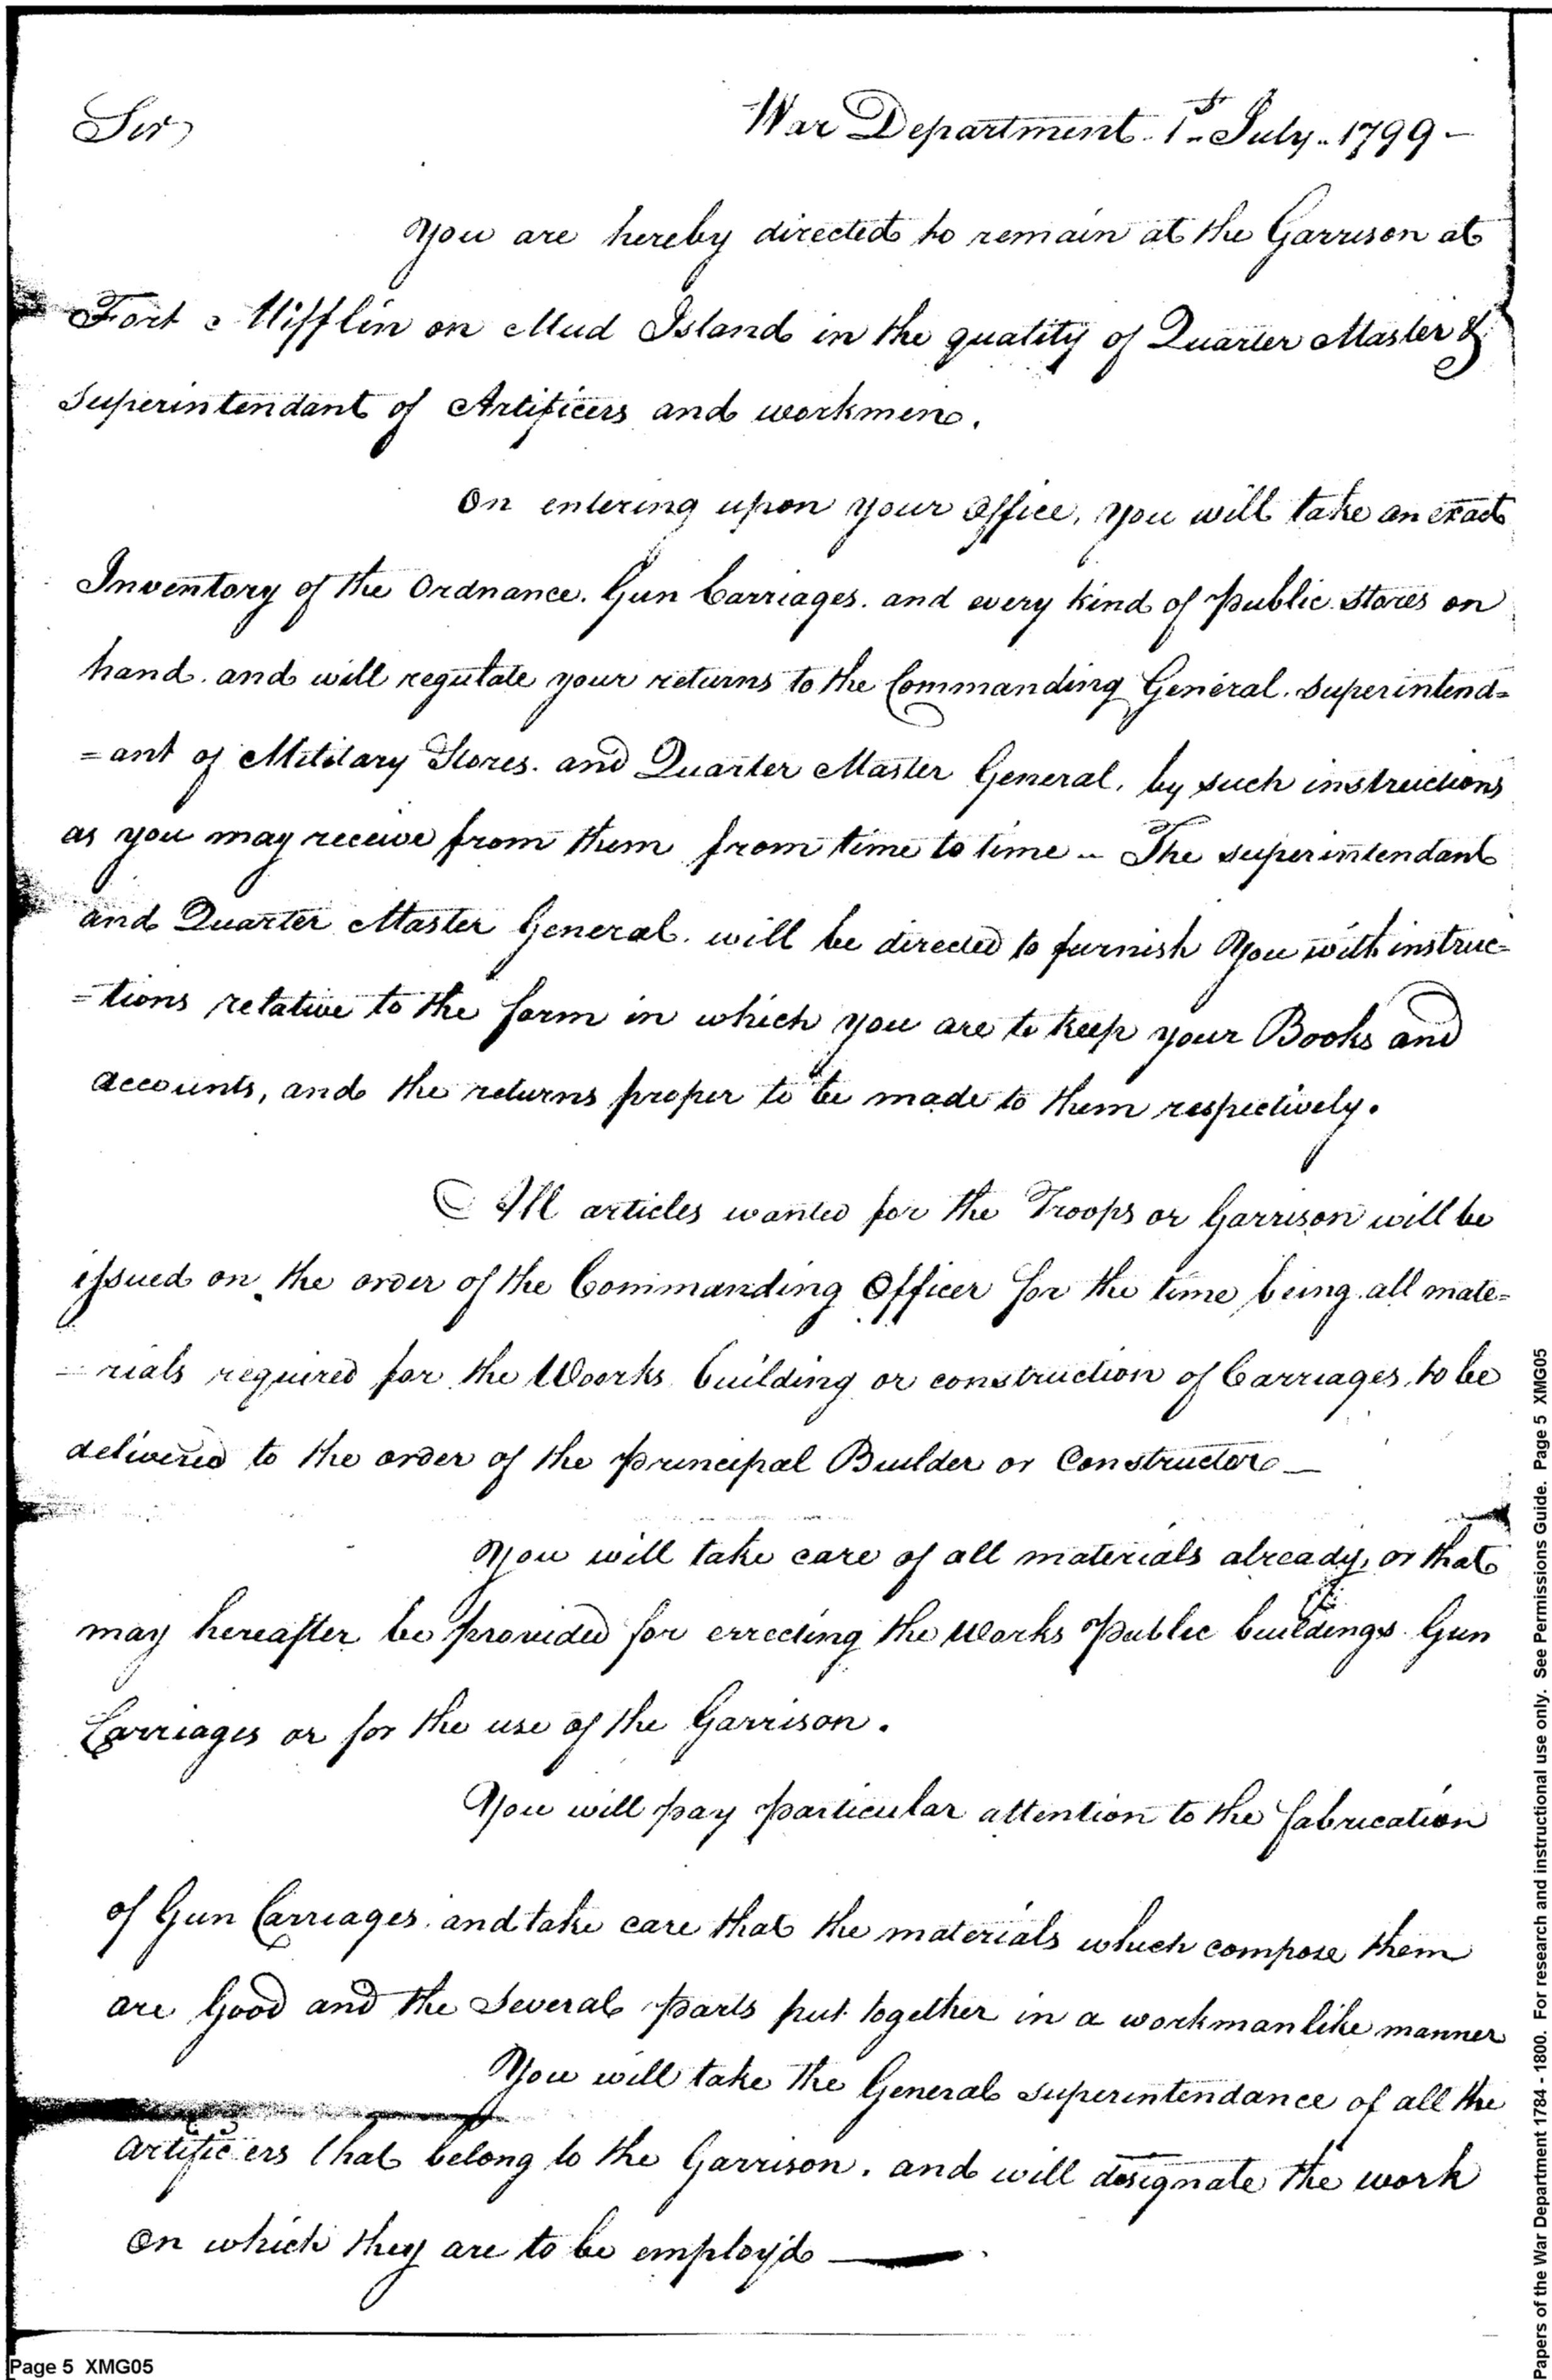 Sir,
War Department. 1st July. 1799 -
You are hereby directed to remain at the Garrison at
Fort Mifflin on Mud Island in the quality of Quarter Master &
Superintendant of Artificers and workmen.
On entering upon your Office, you will take an exact
Inventory of the Ordnance. Gun Carriages. and every kind of public stores on
hand. and will regulate your returns to the Commanding General. Superintend=
=ant of Military Stores. and Quarter Master General, by such instructions
as you may receive from them from time to time - The superintendant
and Quarter Master General. will be directed to furnish you with instruc=
=tions relative to the form in which you are to keep your Books and
accounts, and the returns proper to be made to them respectively.
All articles wanted for the Troops or Garrison will be
issued on the order of the Commanding Officer for the time being. all mate=
=rials required for the Woorks building or construction of Carriages, to be
delivered to the order of the principal Builder or Constructor —
You will take care of all materials already, or that
may hereafter be provided for errecting the Works Public buildings Gun
Carriages or for the use of the Garrison.
You will pay particular attention to the fabrication
of Gun Carriages. and take care that the materials which compose them
are Good and the several parts put together in a workmanlike manner
You will take the General superintendance of all the
artificers that belong to the Garrison. and will designate the work
on which they are to be employ'd —
Page 5 XMG05
Papers of the War Department 1784 - 1800. For research and instructional use only. See Permissions Guide. Page 5 XMG05